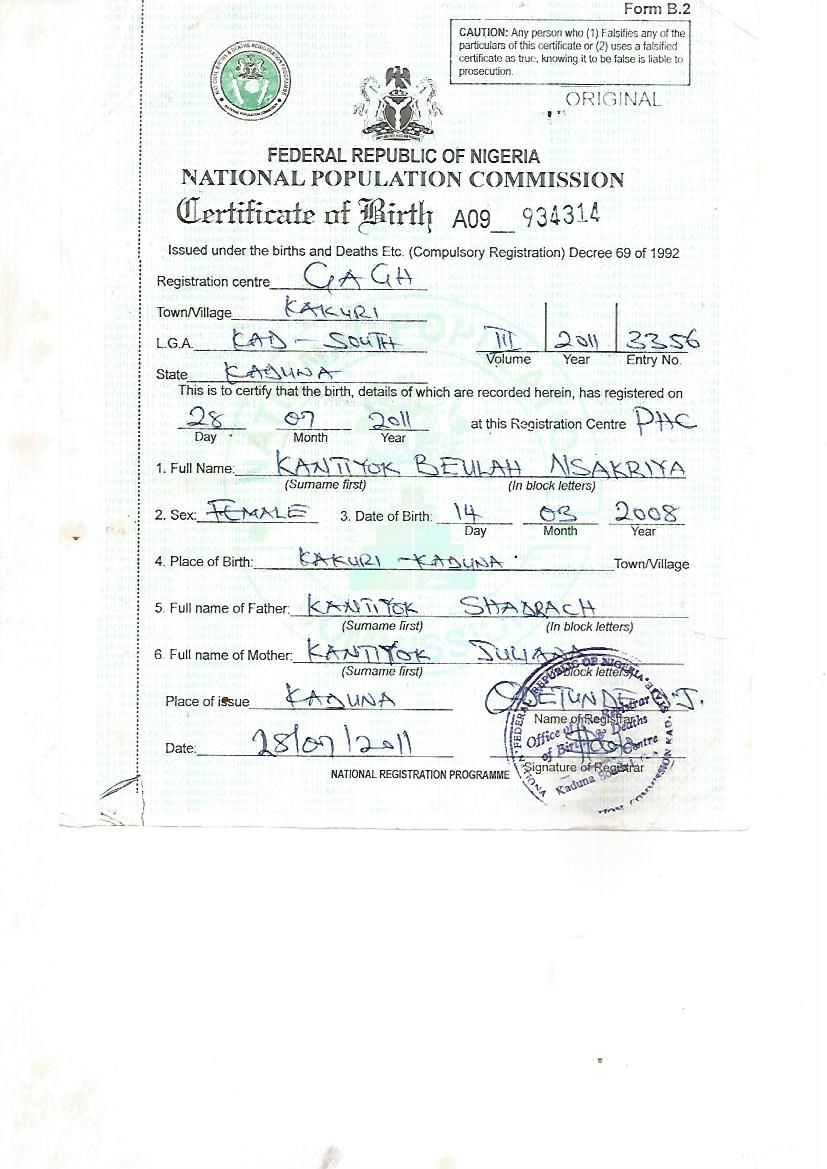 Form B.2
CAUTION: Any person who (1) Falsifies any of the
particulars of this certificate or (2) uses a falsified
certificate as true, knowing it to be false is liable to
prosecution.
ORIGINAL
NATIONAL BIRTHS & DEATHS REGISTRATION PROGRAMME
NATIONAL POPULATION COMMISSION
FEDERAL REPUBLIC OF NIGERIA
NATIONAL POPULATION COMMISSION
Certificate of Birth A09 934314
Issued under the births and Deaths Etc. (Compulsory Registration) Decree 69 of 1992
Registration centre GAGH
Town/Village KAKURI
L.G.A. KAD - SOUTH III 2011 3356
Volume Year Entry No.
State KADUNA
This is to certify that the birth, details of which are recorded herein, has registered on
28 07 2011 at this Registration Centre PHC
Day Month Year
1. Full Name: KANTIYOK BEULAH NSAKRIYA
(Surname first) (In block letters)
2. Sex: FEMALE 3. Date of Birth: 14 03 2008
Day Month Year
4. Place of Birth: KAKURI - KADUNA Town/Village
5. Full name of Father: KANTIYOK SHADRACH
(Surname first) (In block letters)
6. Full name of Mother: KANTIYOK JULIANA
(Surname first) block letters)
Place of issue KADUNA
Name of Registrar
Date: 28/07/2011
Signature of Registrar
NATIONAL REGISTRATION PROGRAMME
FEDERAL REPUBLIC OF NIGERIA
Office of Registrar
of Birth & Deaths
Kaduna